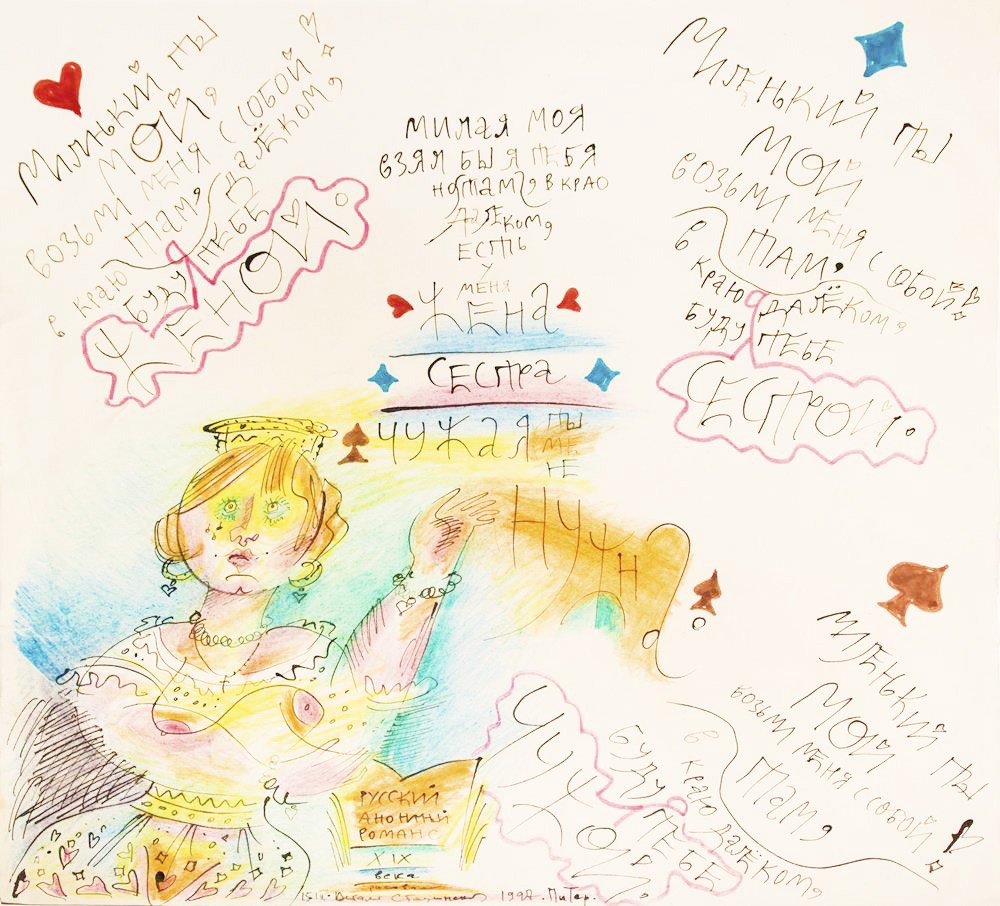 Милинький ты
мой,
возьми меня с собой!
там, в
краю далёком,
буду тебе
женой.
милая моя
взял бы я тебя
но там, в краю
далёком,
есть
у
меня
жена
сестра
чужая ты
мне не
нужн
а
Миленький ты
мой
возьми меня с собой!
там,
в краю далёком,
буду тебе
сестрой.
миленький ты
мой
возьми меня с собой!
там,
в краю далёком,
буду тебе
чужой.
русский
анонимй
романс
XIX
века
1997. Питер.